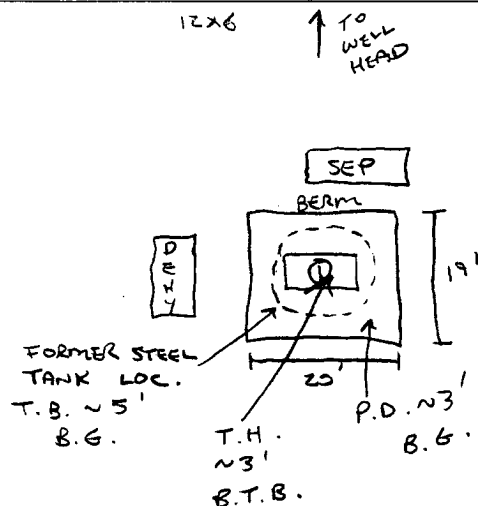 12x6
↑ TO
WELL
HEAD
SEP
BERM
DEHY
①
19'
20'
FORMER STEEL
TANK LOC.
T.B. ~ 5'
B.G.
T.H.
~3'
B.T.B.
P.D. ~3'
B.G.